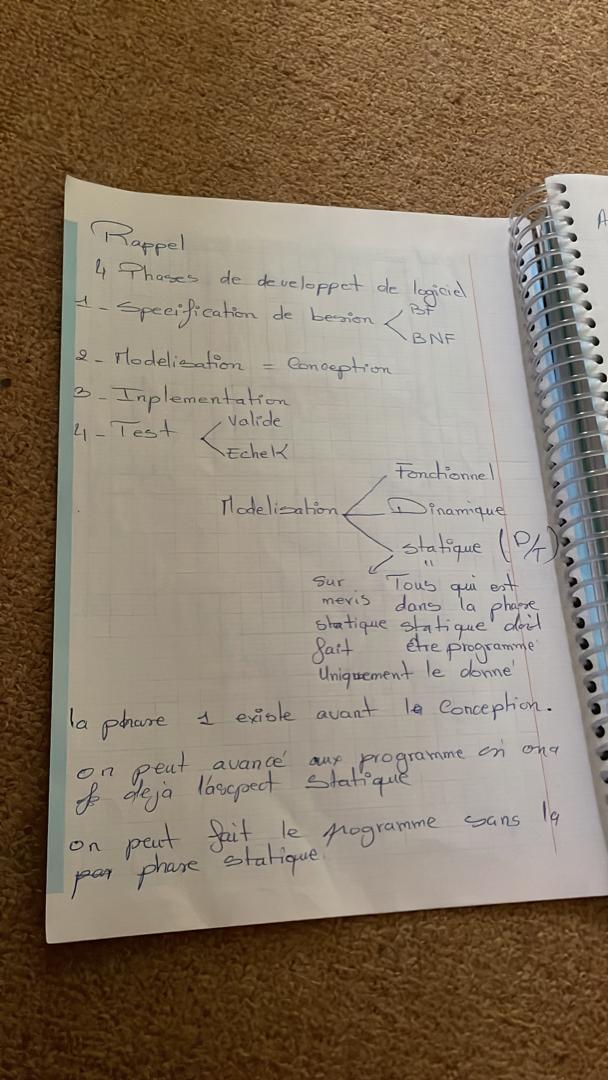 Rappel
4 Phases de developpet de logiciel
1 - Specification de besion < BF
BNF
2 - Modelisation = Conception
3 - Inplementation
4 - Test < Valide
Echek
Modelisation
Fonctionnel
Dinamique
statique (D/T)
"
sur
meris
statique
fait
Tous qui est
dans la phase
statique doit
être programme
Uniquement le donné
la phase 1 existe avant le Conception.
on peut avancé aux programme on a
deja l'ascpect statique
on peut fait le programme sans la
phase statique.
A